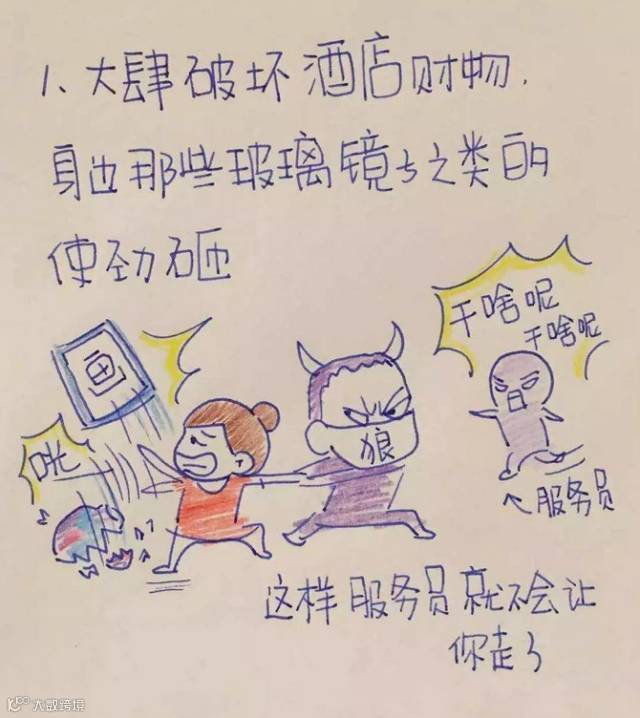 1、大肆破坏酒店财物,
身边那些玻璃镜子之类的
使劲砸
干啥呢
干啥呢
画
狼
咣
服务员
这样服务员就不会让
你走了
大数跨境